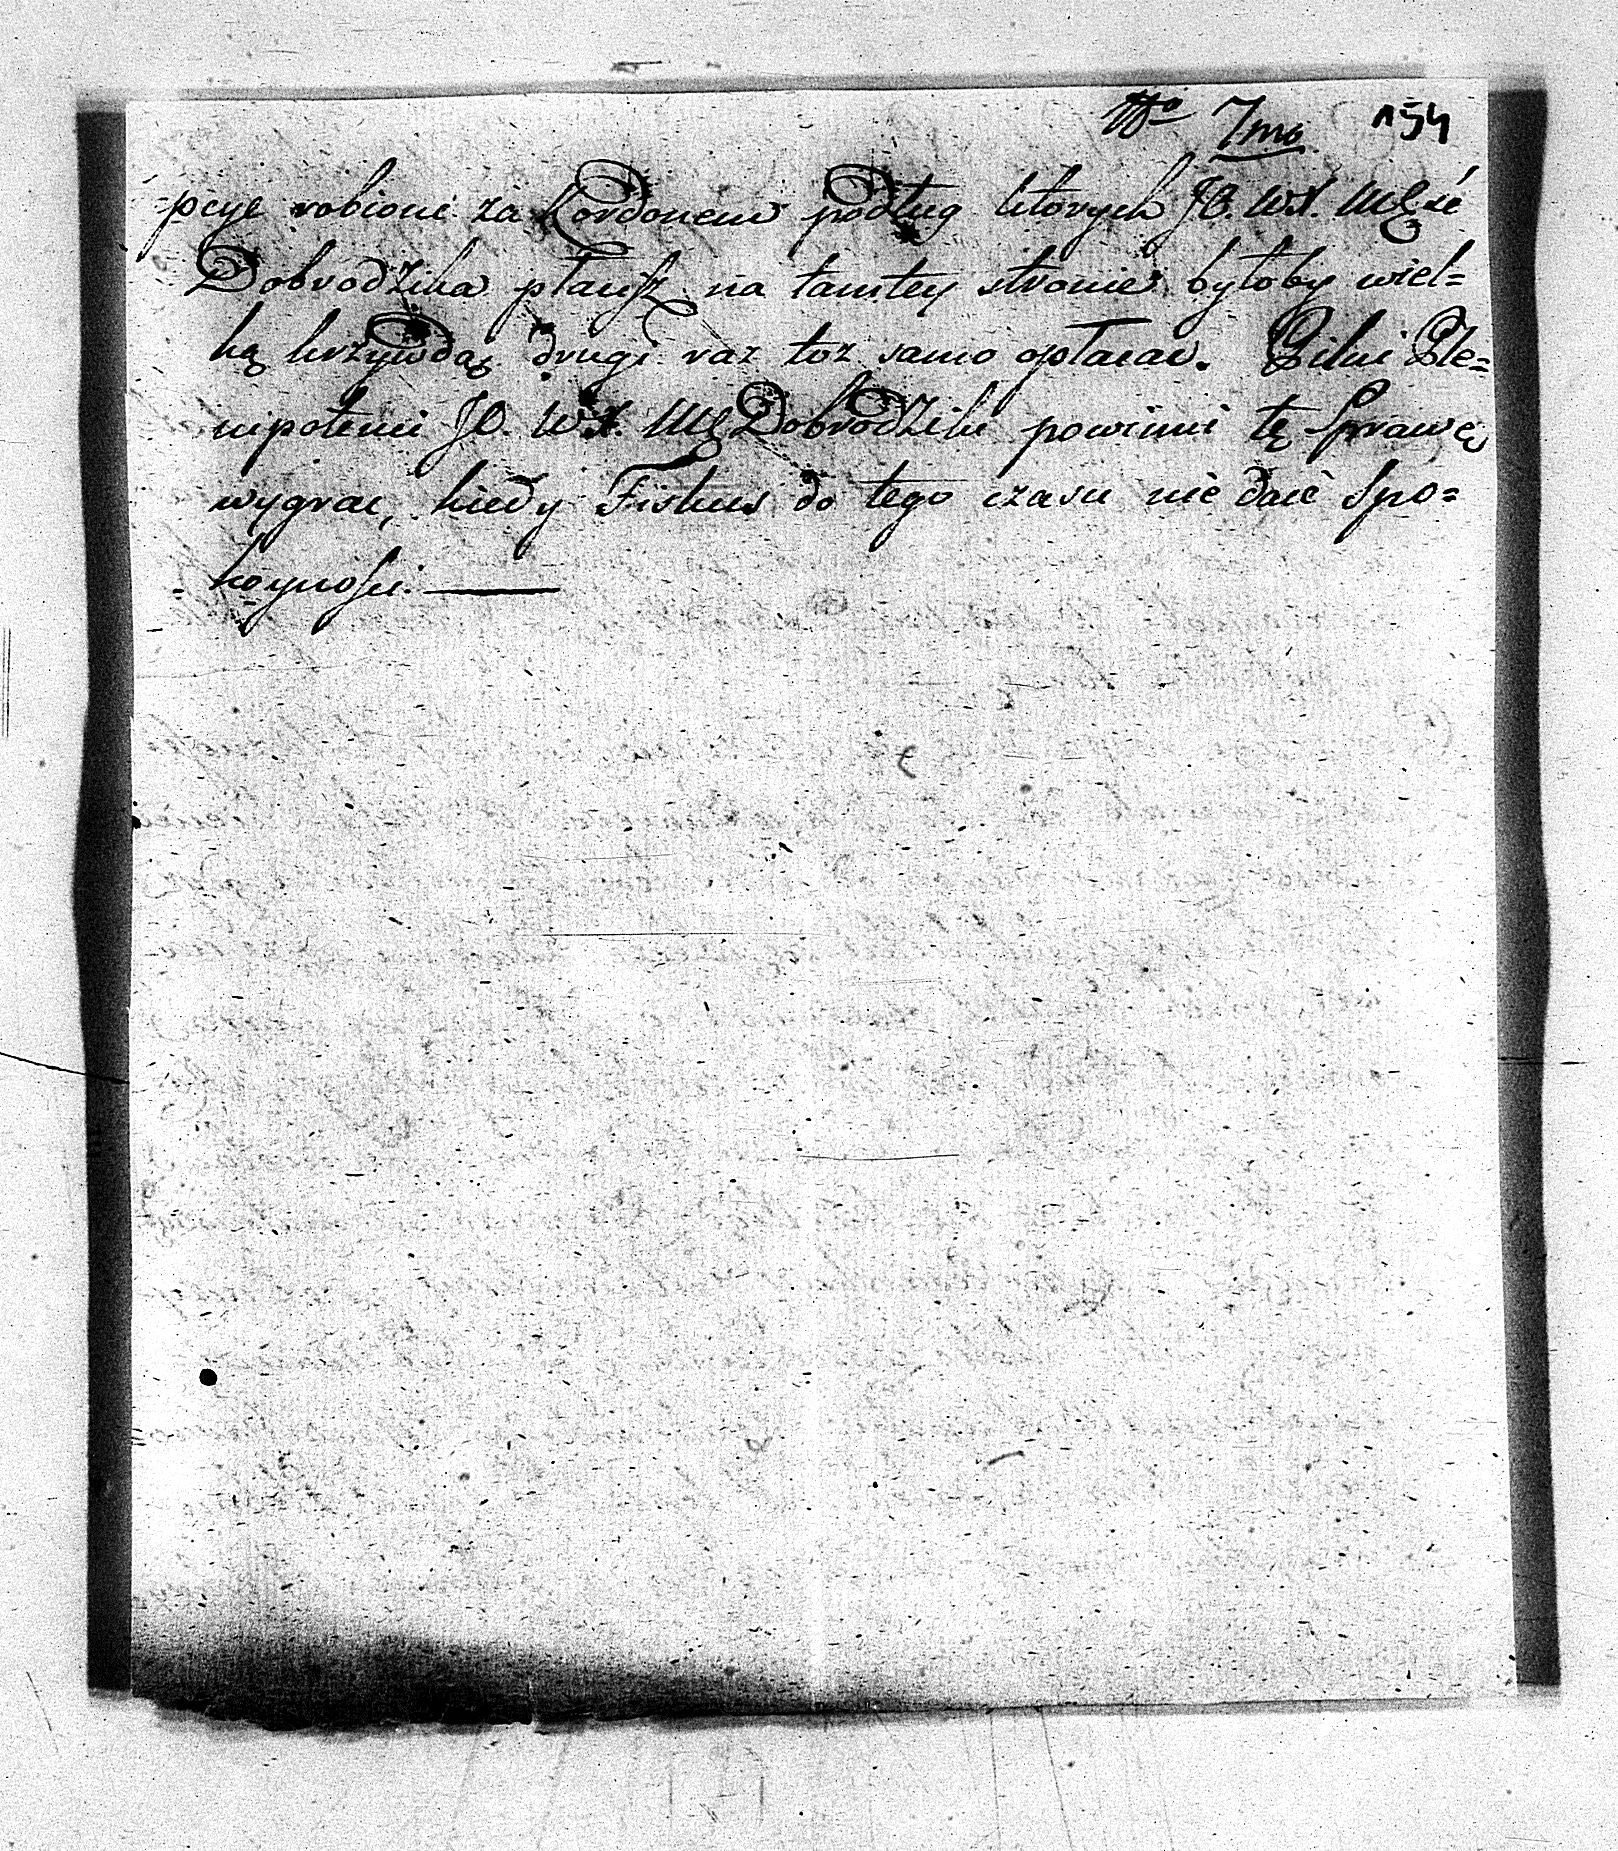 Nro 7mo 154
=pcye robione za Kordonem podług ktorych JO. WX. Mść
Dobrodzika płacisz na tamtey stronie byłoby wiel=
ką krzywdą drugi raz toż samo opłacac. Pilni Ple=
nipotenci JO. WX. Mć Dobrodziki powinni tę Sprawę
wygrac, kiedy Fiskus do tego czasu nie daie Spo=
=koynosci.